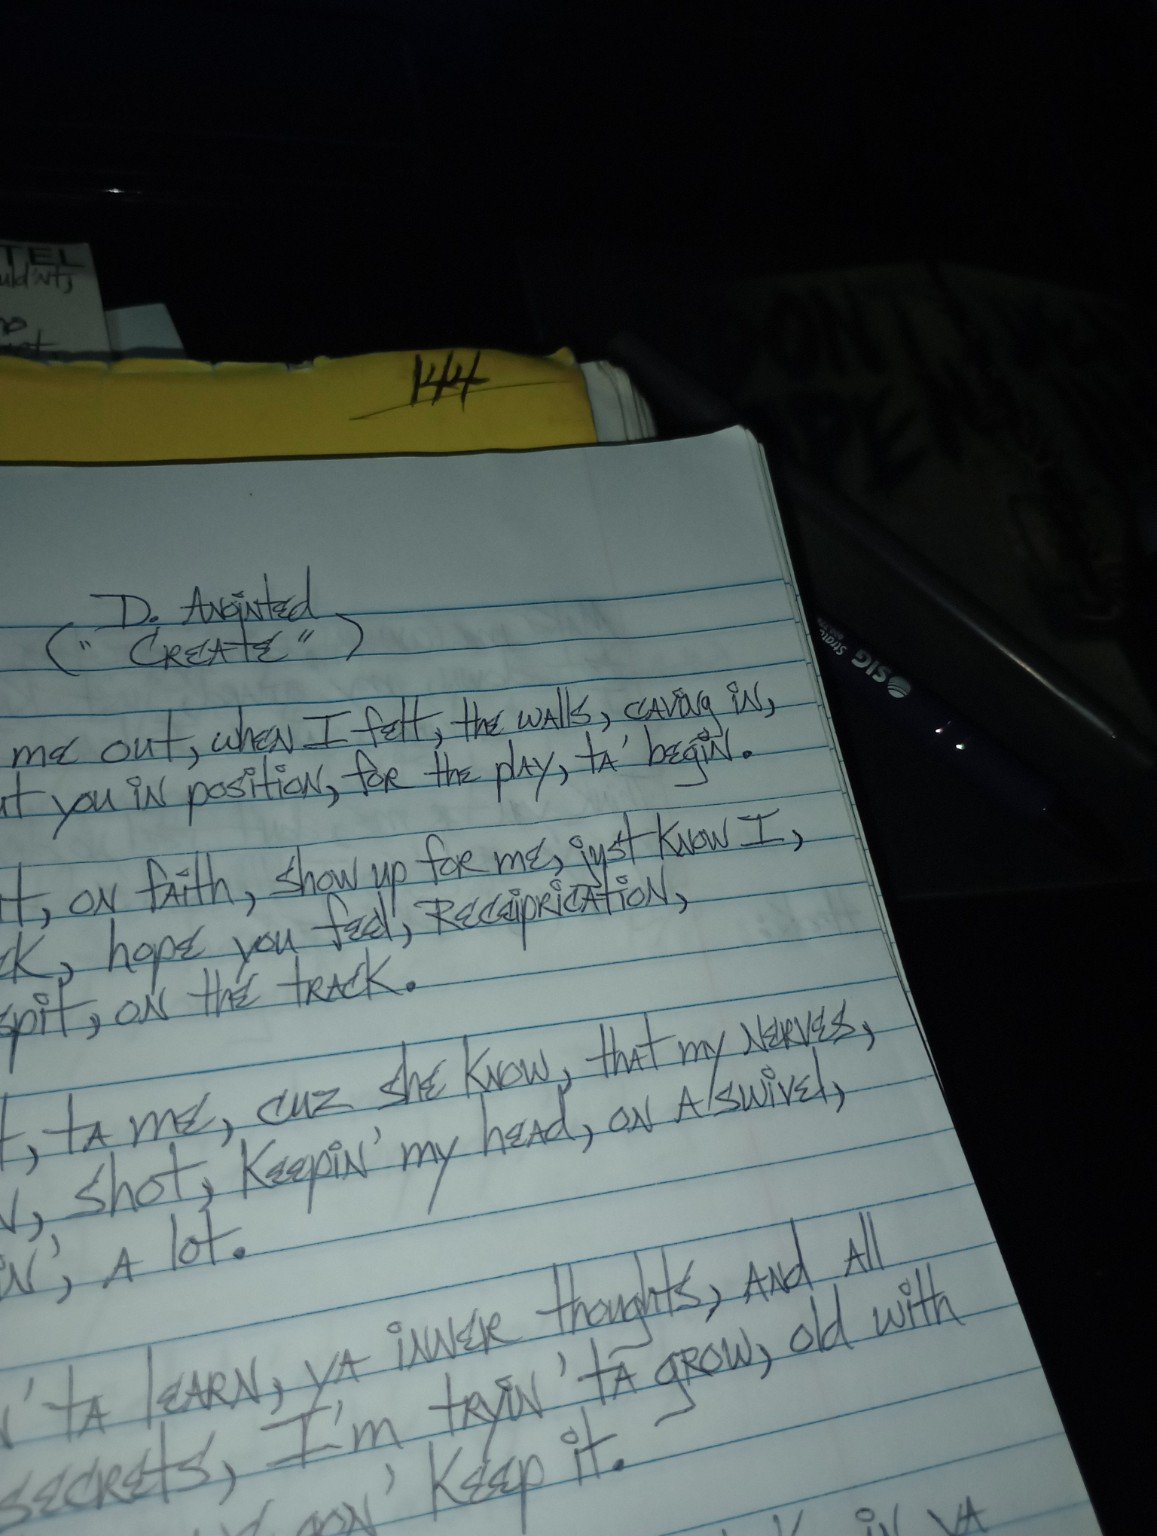 TEL
144
D. Anointed
("CREATE")
me out, when I felt, the walls, caving in,
you in position, for the play, ta' begin.
on faith, show up for me, just know I,
hope you feel, Receiprication,
spit, on the track.
ta me, cuz she know, that my nerves,
shot, keepin' my head, on a swivel,
a lot.
ta learn, ya inner thoughts, and all
secrets, I'm tryin' ta grow, old with
gon' keep it.
in ya
SIG